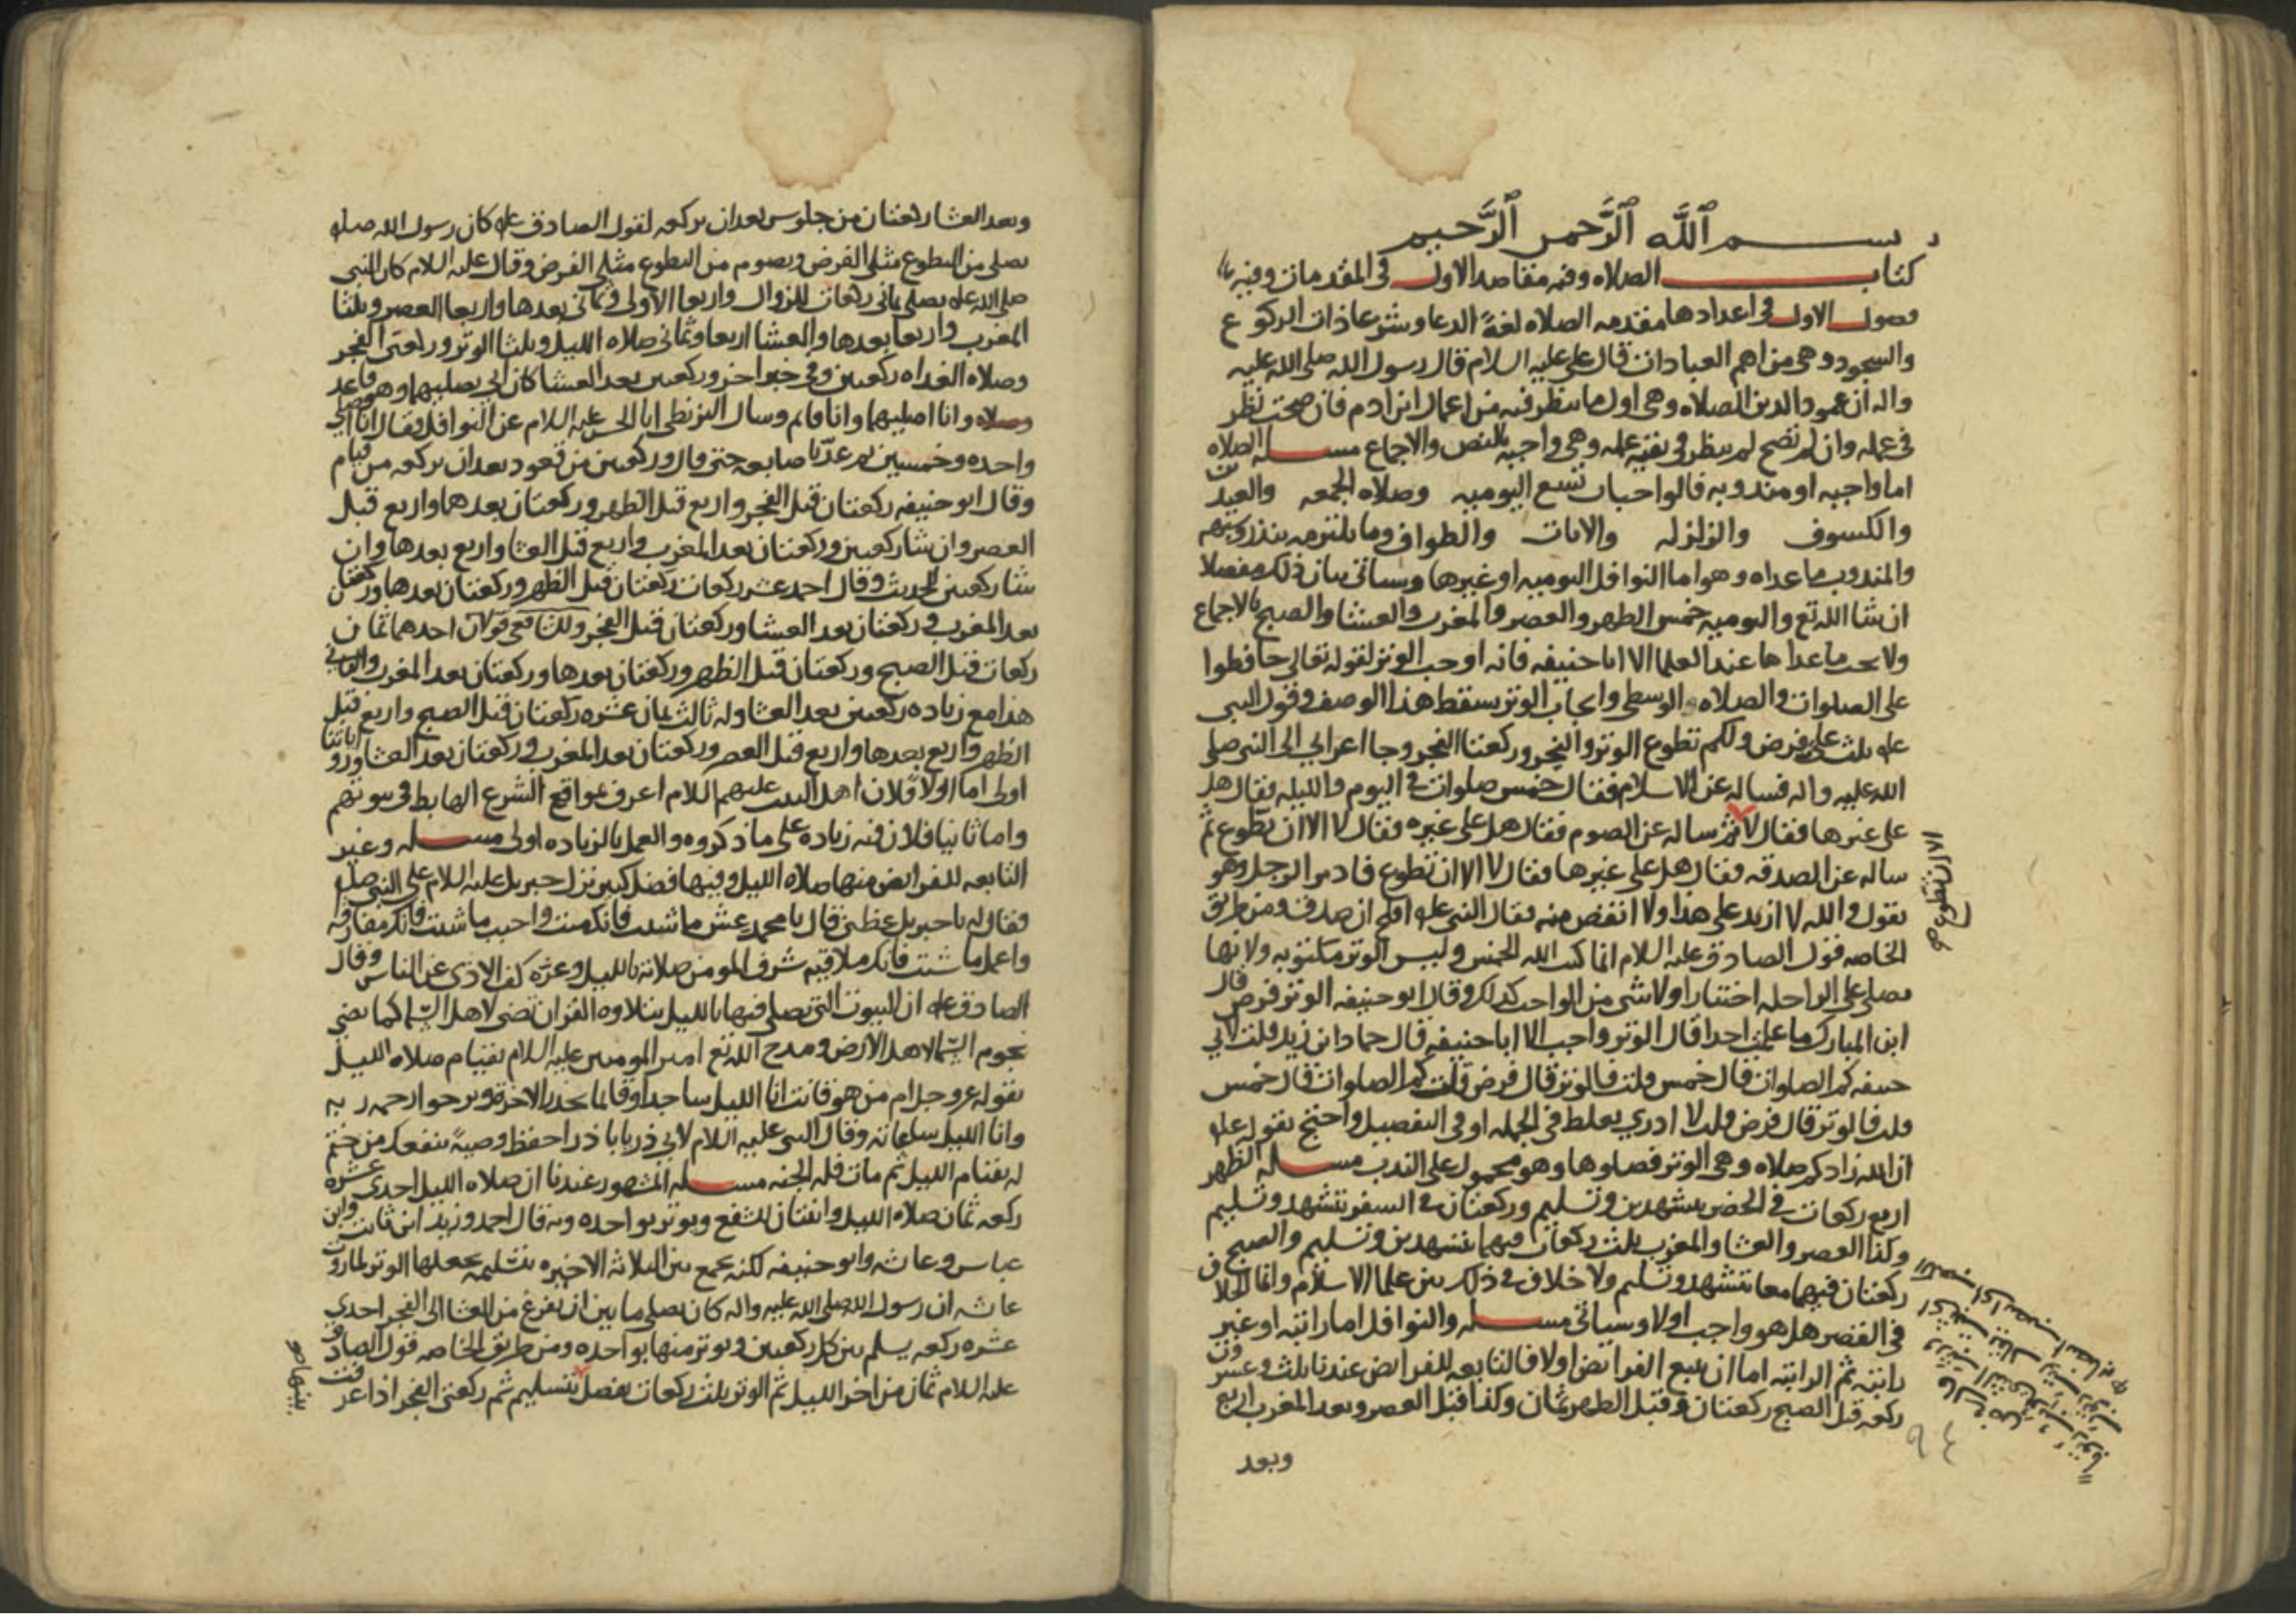 بسم الله الرحمن الرحيم
كتاب الصلاه وفيه مقاصد الاول في المقدمات وفيه
فصول الاول في اعدادها مقدمه الصلاه لغةً الدعا وشرعا ذات الركوع
والسجود وهى من اهم العبادات قال علي عليه السلام قال رسول الله صلى الله عليه
واله ان عمود الدين الصلاه وهى اول ما ينظر فيه من اعمال ابن ادم فان صحت نظر
في عمله وان لم تصح لم ينظر في بقيه عمله وهى واجبه بالنص والاجماع مسله الصلاه
اما واجبه او مندوبه فالواجبات تسع اليوميه وصلاه الجمعه والعيدين
والكسوف والزلزله والايات والطواف وما يلتزمه بنذر وشبهه
والمندوب ما عداه وهو اما النوافل اليوميه او غيرها وسياتى بيان ذلك مفصلا
ان شا الله تع واليوميه خمس الظهر والعصر والمغرب والعشا والصبح بالاجماع
ولا يجب ما عداها عند العلما الا ابا حنيفه فانه اوجب الوتر لقوله تعالى حافظوا
على الصلوات والصلاه الوسطى وايجاب الوتر يسقط هذا الوصف وقول النبى
عله ثلث على فرض ولكم تطوع الوتر والنحر وركعتا الفجر وجا اعرابي الى النبى صلى
الله عليه واله فساله عن الاسلام فقال خمس صلوات في اليوم والليله فقال هل
على غيرها فقال لا ثم ساله عن الصوم فقال هل على غيره فقال لا الا ان تطوع ثم
ساله عن الصدقه فقال هل على غيرها فقال لا الا ان تطوع فادبر الرجل وهو
يقول والله لا ازيد على هذا ولا انقص منه فقال النبى عله افلح ان صدق ومن طريق
الخاصه قول الصادق عليه السلام انما كتب الله الخمس وليس الوتر مكتوبه ولانها
تصلى على الراحله اختيارا ولا شى من الواجب كذلك وقال ابو حنيفه الوتر فرض قال
ابن المبارك ما علمت احدا قال الوتر واجب الا ابا حنيفه قال حماد ابن زيد قلت لابي
حنيفه كم الصلوات قال خمس قلت فالوتر قال فرض قلت كم الصلوات قال خمس
قلت فالوتر قال فرض قلت لا ادري يغلط في الجمله او في التفصيل واحتج بقوله عله
ان الله زادكم صلاه وهى الوتر فصلوها وهو محمول على الندب مسله الظهر
اربع ركعات في الحضر بتشهدين وتسليم وركعتان في السفر بتشهد وتسليم
وكذا العصر والعشا والمغرب ثلث ركعات فيهما بتشهدين وتسليم والصبح
ركعتان فيهما معا بتشهد وتسليم ولا خلاف في ذلك بين علما الاسلام وانما الخلاف
في القصر هل هو واجب اولا وسياتى مسله والنوافل اما راتبه او غير
راتبه ثم الراتبه اما ان تتبع الفرائض اولا فالتابعه للفرائض عندنا ثلث وعشرون
ركعه قبل الصبح ركعتان وقبل الظهر ثمان وكذا قبل العصر وبعد المغرب اربع
وبعد
الا ان تطوع صح
٩٤
وبعد العشا ركعتان من جلوس بعدان بركعه لقول الصادق عله كان رسول الله صلعم
يصلى من التطوع مثلى الفرض ويصوم من التطوع مثلى الفرض وقال عليه السلام كان النبى
صلى الله عله يصلى ثمانى ركعات للزوال واربعا الاولى وثمانى بعدها واربعا العصر وثلثا
المغرب واربعا بعدها والعشا اربعا وثمانى صلاه الليل وثلثا الوتر وركعتى الفجر
وصلاه الغداه ركعتين وفى خبر اخر وركعتين بعد العشا كان ابي يصليهما وهو قاعد
وانا اصليهما وانا قايم وسال البزنطى ابا الحسن عليه السلام عن النوافل فقال انا اصلي
واحده وخمسين ثم عد باصابعه حتى قال وركعتين من قعود بعدان بركعه من قيام
وقال ابو حنيفه ركعتان قبل الفجر واربع قبل الظهر وركعتان بعدهما واربع قبل
العصر وان شا ركعتين وركعتان بعد المغرب واربع قبل العشا واربع بعدها وان
شا ركعتين للحديث وقال احمد عشر ركعات ركعتان قبل الظهر وركعتان بعدها وركعتان
بعد المغرب وركعتان بعد العشا وركعتان قبل الفجر وللشافعى قولان احدهما ثمان
ركعات قبل الصبح وركعتان قبل الظهر وركعتان بعدها وركعتان بعد المغرب والثانى
هذا مع زياده ركعتين بعد العشا وله ثالث ثمان عشره ركعتان قبل الصبح واربع قبل
الظهر واربع بعدها واربع قبل العصر وركعتان بعد المغرب وركعتان بعد العشا ورواياتنا
اولى اما اولا فلان اهل البيت عليهم السلام اعرف بمواقع الشرع الهابط في بيوتهم
واما ثانيا فلان فيه زياده على ما ذكروه والعمل بالزياده اولى مسله وغير
التابعه للفرائض منها صلاه الليل وفيها فضل كبير نزل جبريل عليه السلام على النبى صلعم
فقال له يا جبريل عظنى قال يا محمد عش ما شئت فانك ميت واحبب ما شئت فانك مفارقه
واعمل ما شئت فانك ملاقيه شرف المومن صلاته بالليل وعزه كف الاذى عن الناس وقال
الصادق عله ان البيوت التي يصلى فيها بالليل بتلاوه القران تضى لاهل السما كما تضى
نجوم السما لاهل الارض ومدح الله تع امير المومنين عليه السلام بقيام صلاه الليل
بقوله عز وجل ام من هو قانت انا الليل ساجدا وقائما يحذر الاخره ويرجوا رحمه ربه
وانا الليل ساعاته وقال النبى عليه السلام لابي ذر يا با ذر احفظ وصيةً تنفعك من ختم
له بقيام الليل ثم مات فله الجنه مسله المشهور عندنا ان صلاه الليل احدى عشره
ركعه ثمان صلاه الليل واثنتان للشفع ويوتر بواحده وبه قال احمد وزيد ابن ثابت وابن
عباس وعائشه وابو حنيفه لكنه يجمع بين الثلاثه الاخيره بتسليمه يجعلها الوتر لما روت
عائشه ان رسول الله صلى الله عليه واله كان يصلى ما بين ان يفرغ من العشا الى الفجر احدى
عشره ركعه يسلم بين كل ركعتين ويوتر منها بواحده ومن طريق الخاصه قول الصادق
عليه السلام ثمان من اخر الليل ثم الوتر ثلث ركعات يفصل بتسليم ثم ركعتى الفجر
بينها صح